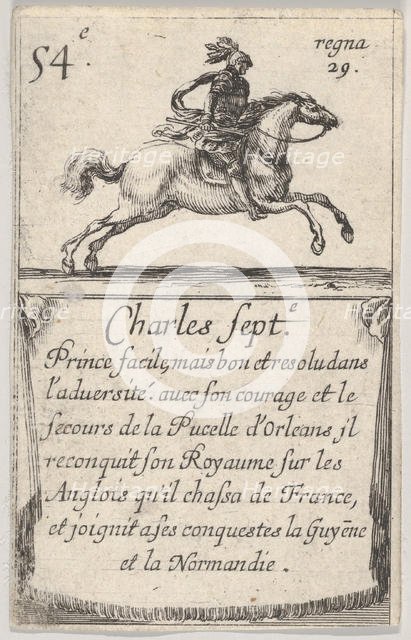 54.e
regna
29.
Charles sept.e
Prince facile, mais bon et resolu dans
l'aduersité. auec son courage et le
secours de la Pucelle d'Orleans jl
reconquit son Royaume sur les
Anglois qu'il chassa de France,
et joignit a ses conquestes la Guyēne
et la Normandie.